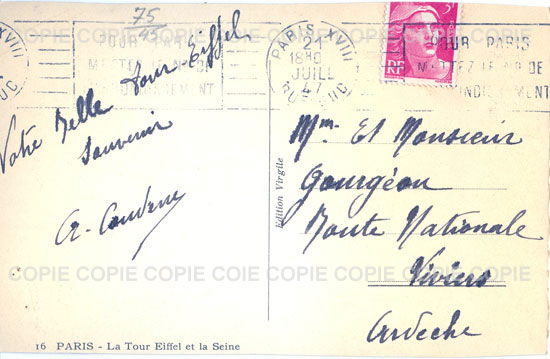 75
POUR PARIS
METTEZ LE N° DE
L'ARRONDISSEMENT
PARIS XVIII
21
18H30
JUIL
47
RUE DUC
RF
POUR PARIS
METTEZ LE N° DE
Votre Belle tour Eiffel
Souvenir
Mme Et Monsieur
Gourgéon
Route Nationale
Viviers
Ardèche
Edition Virgile
COPIE COPIE COPIE COPIE COIE COPIE COPIE COPIE
16 PARIS - La Tour Eiffel et la Seine